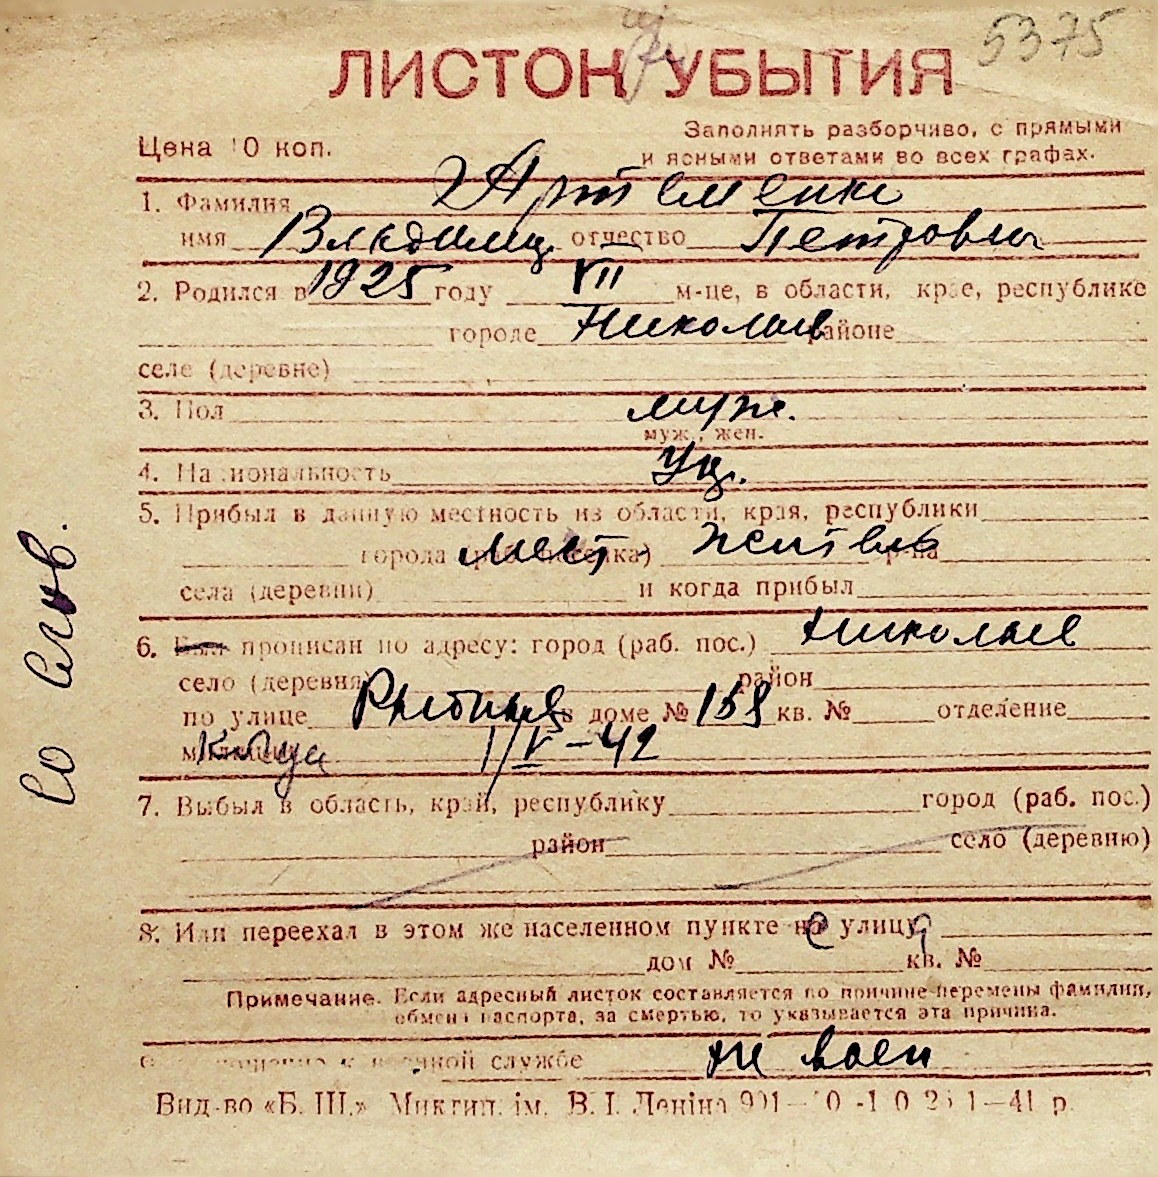 5375
ЛИСТОК УБЫТИЯ
Цена 10 коп.
Заполнять разборчиво, с прямыми
и ясными ответами во всех графах.
1. Фамилия Артеменко
имя Владимир отчество Петрович
2. Родился в 1925 году VII м-це, в области, крае, республике
городе Николаев районе
селе (деревне)
3. Пол муж.
муж., жен.
4. Национальность Укр.
5. Прибыл в данную местность из области, края, республики
города (раб. поселка) мест. житель р-на
села (деревни) и когда прибыл
6. Был прописан по адресу: город (раб. пос.) Николаев
село (деревня) район
по улице Рыбная в доме № 158 кв. № отделение
милиции Когда 1/V-42
7. Выбыл в область, край, республику город (раб. пос.)
район село (деревню)
8. Или переехал в этом же населенном пункте на улицу
дом № кв. №
Примечание. Если адресный листок составляется по причине перемены фамилии,
обмена паспорта, за смертью, то указывается эта причина.
9. Отношение к военной службе не воен
Вид-во «Б. Ш.» Микт​ип. ім. В. І. Леніна 41 р.
Со слов.